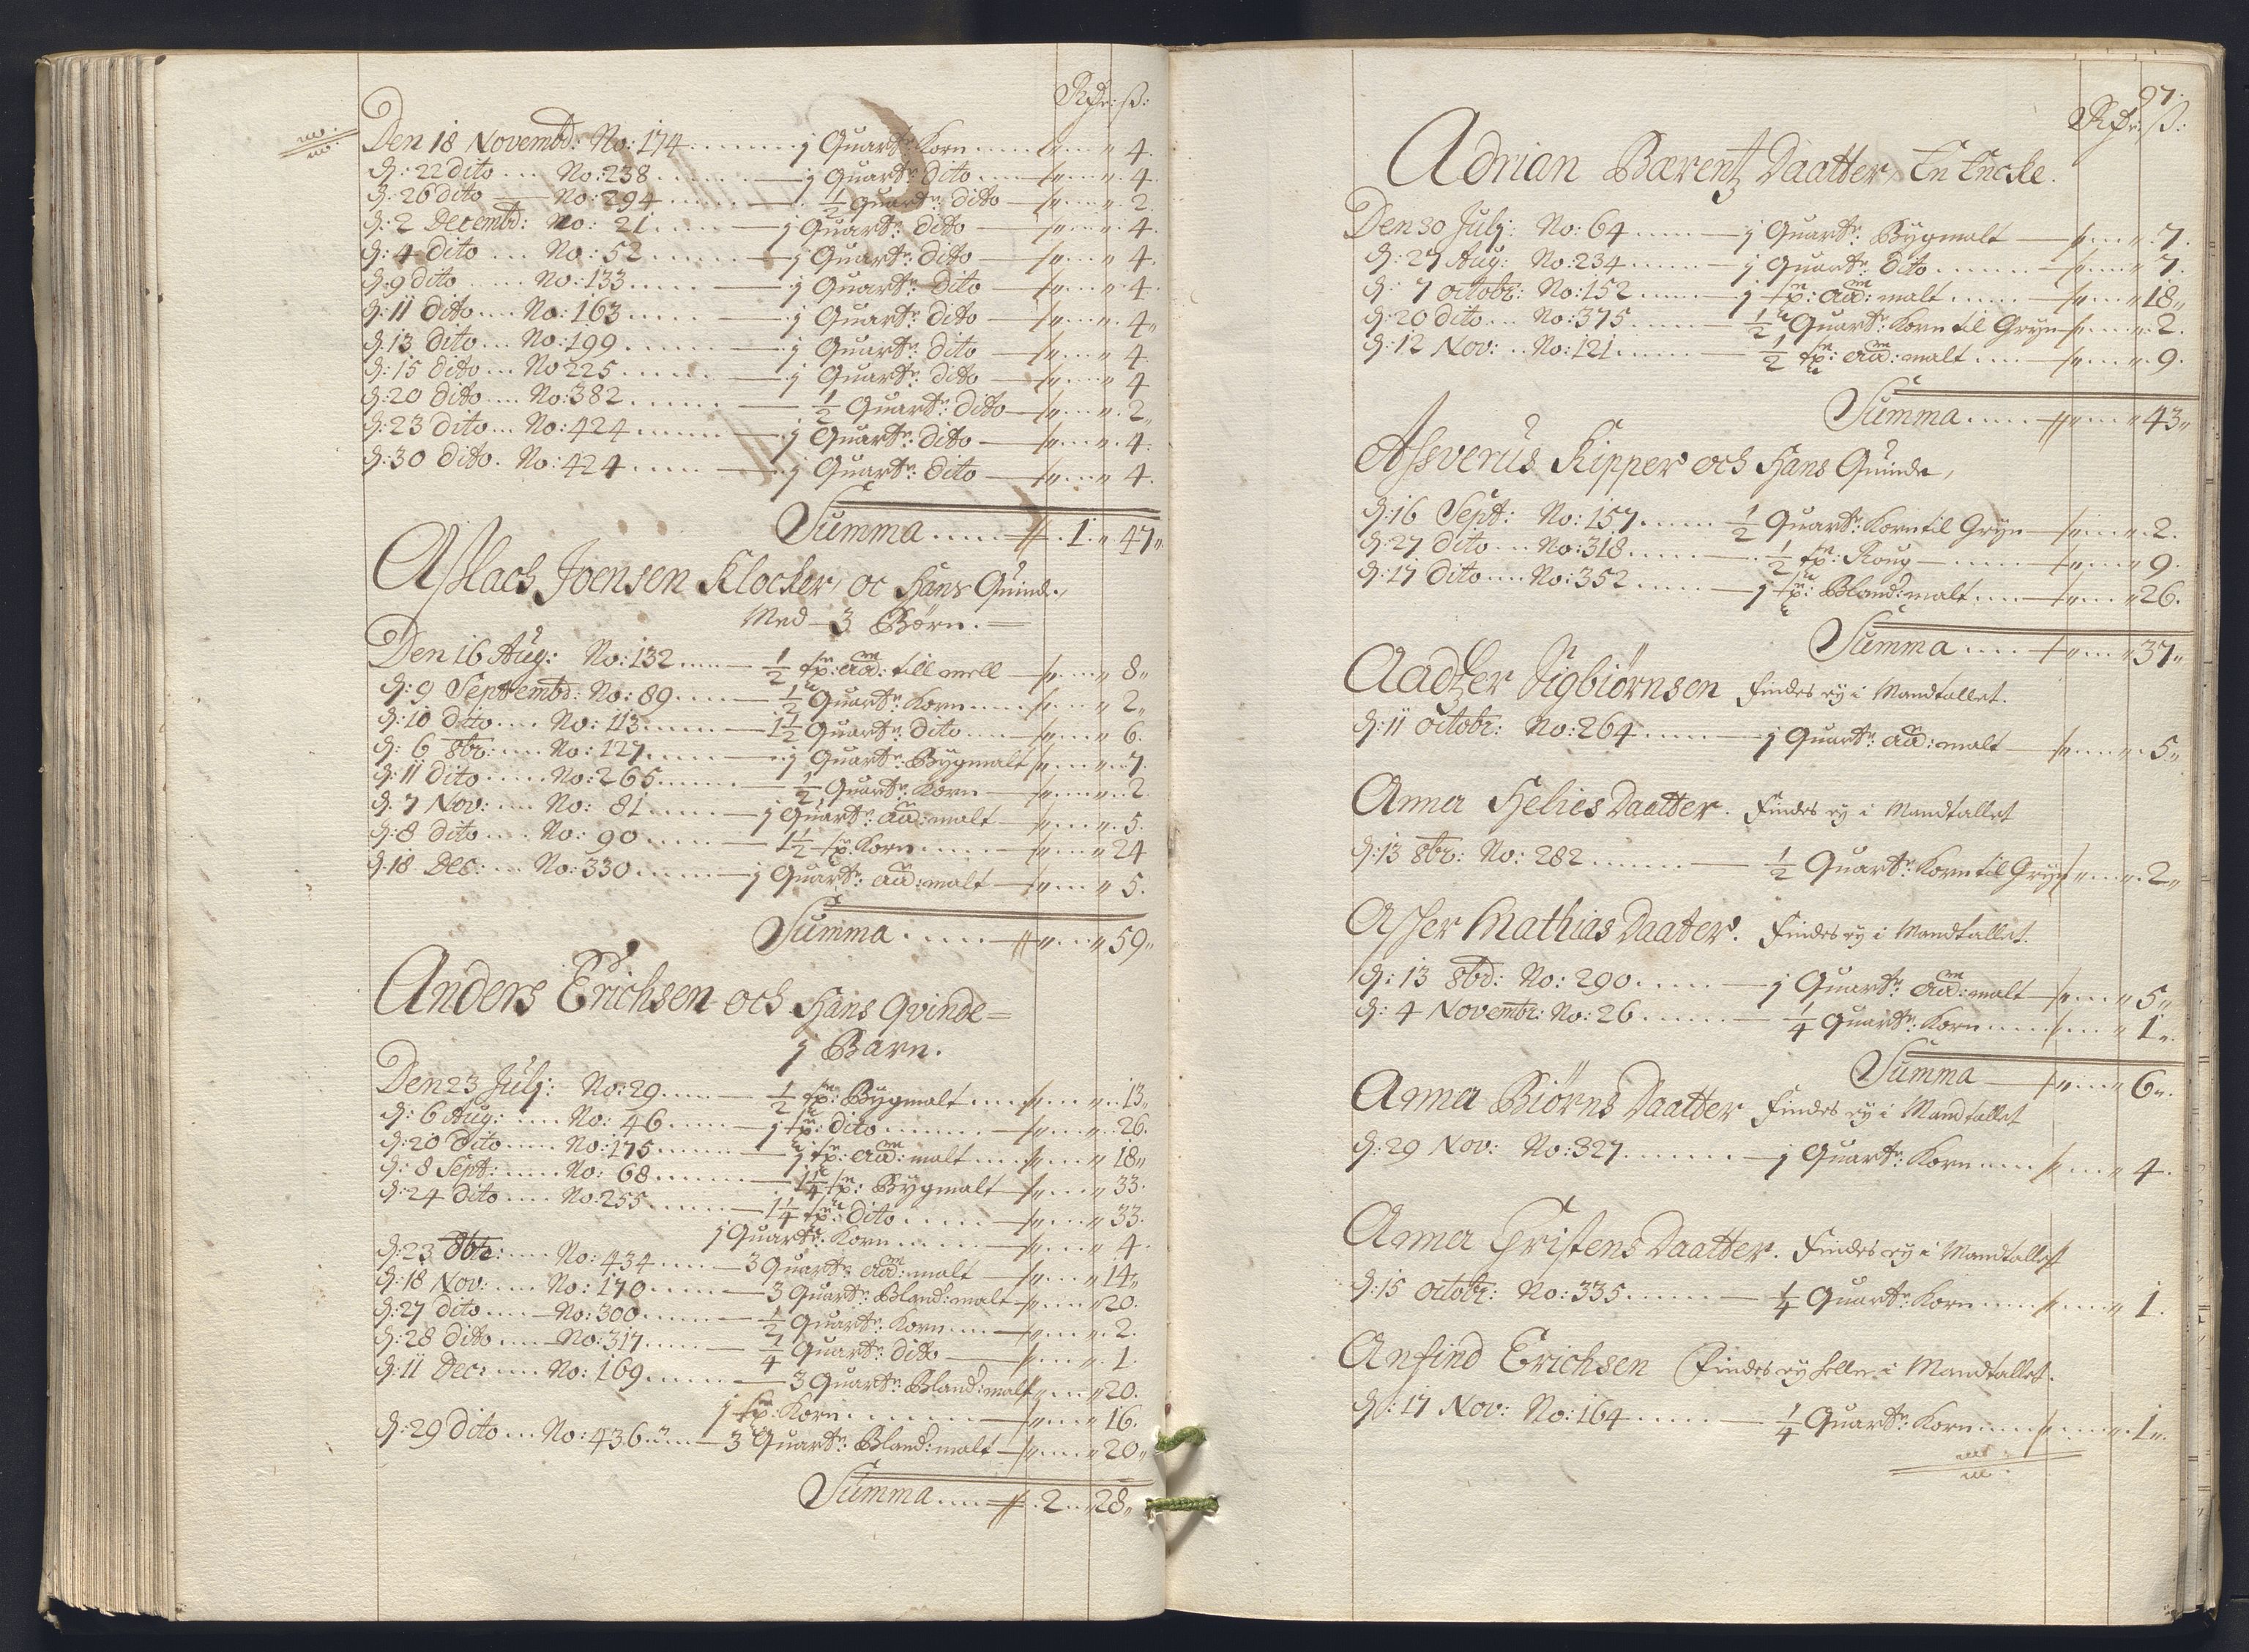 Rdr: ß:
Den 18 Novembd: No: 174 ........ j Quart: Korn ...... 4.
d: 22 dito ... No: 238 ........ j Quart: dito ...... 4.
d: 26 dito — No: 294 ........ ½ Quart: dito — 2.
d: 2 Decembd: No: 21 ........ j Quart: dito — 4.
d: 4 dito ... No: 52 ........ j Quart: dito — 4.
d: 9 dito ... No: 133 ........ j Quart: dito — 4.
d: 11 dito ... No: 163 ........ j Quart: dito — 4.
d: 13 dito ... No: 199 ........ j Quart: dito — 4.
d: 15 dito ... No 225 ........ j Quart: dito — 4
d: 20 dito ... No: 382 ........ ½ Quart: dito — 2.
d: 23 dito ... No: 424 ........ j Quart: dito — 4.
d: 30 dito. No: 424 ........ j Quart: dito — 4.
Summa ..... 1 „ 47„
Asslach Joensen Klocker, oc Hans Quinde,
Med 3 Børn.
Den 16 Aug: No: 132 ..... ½ sp: aad: till mell — 8„
d: 9 Septembd: No: 89 ..... ½ Quart: Korn ..... 2„
d: 10 dito .... No: 113 ..... 1½ Quart: dito ..... 6.
d: 6 8br: .... No: 127 ..... j Quart: Bygmalt 7.
d: 11 dito ..... No: 265 ..... ½ Quart: Korn — 2.
d: 7 Nov: .... No: 81 ..... j Quart: aad: malt — 5.
d: 8 dito .... No: 90 ..... 1½ sp: Korn ..... 24
d: 18 Dec: ... No: 330 ..... j Quart: aad: malt — 5.
Summa ..... 59„
Anders Erichsen och Hans Qvinde =
j Barn.
Den 23 Julj: No: 29 ..... ½ sp: Bygmalt .... 13„
d: 6 Aug: .... No: 46 ..... j sp: dito ..... 26.
d: 20 dito .... No: 175 ..... j sp: aad: malt .... 18„
d: 8 Sept: .... No: 68 ..... 1¼ sp: Bygmalt — 33.
d: 24 dito .... No: 255 ..... 1¼ sp: dito ..... 33.
j Quart: Korn ..... 4.
d: 23 8br: .... No: 434 ..... 3 Quart: aad: malt — 14„
d: 18 Nov: .... No: 170 ..... 3 Quart: Bland: malt — 20.
d: 27 dito .... No: 300 ..... ½ Quart: Korn .... 2.
d: 28 dito .... No: 317 ..... ¼ Quart: dito — 1.
d: 11 Dec: .... No: 169 ..... 3 Quart: Bland: malt 20.
j sp: Korn ..... 16.
d: 29 dito ... No: 436 ..... 3 Quart: Bland: malt — 20„
Summa ..... 2 .. 28„
97.
Rdr: ß:
Adrian Bærentz Daatter, En Encke.
Den 30 Julj: No: 64 ..... j Quart: Bygmalt — 7.
d: 27 Aug: No: 234 ..... j Quart: dito ..... 7.
d: 7 octobr: No: 152 ..... j sp: aad: malt ..... 18„
d: 20 dito ... No: 375 ..... ½ Quart: Korn til Gryn 2.
d: 12 Nov: .. No: 121 ..... ½ sp: aad: malt .... 9.
Summa ..... 43„
Assverus Kipper och Hans Quinde,
d: 16 Sept: No: 157 ..... ½ Quart: Korn til Gryn — 2.
d: 27 dito ... No: 318 ..... ½ sp: Roug — 9.
d: 17 dito .... No: 352 ..... j sp: Bland: malt .... 26.
Summa .... 37„
Aadzer Sigbiørnsen findes ey i Mandtallet.
d: 11 octobr: No: 264 ..... j Quart: aad: malt — 5„
Anna Helies Daatter. findes ey i Mandtallet
d: 13 8br: No: 282 ..... ½ Quart: Korn til Gryn 2„
Asser Mathias Daatter. findes ey i Mandtallet.
d: 13 8bd: No: 290 ..... j Quart: aad: malt — 5„
d: 4 Novembr: No: 26 ..... ¼ Quart: Korn ..... 1„
Summa — 6„
Anna Biørns Daatter findes ey i Mandtallet
d: 29 Nov: No: 327 ..... j Quart: Korn ..... 4.
Anna Christens Daatter. findes ey i Mandtallet
d: 15 octobr: No: 335 ..... ¼ Quart: Korn ..... 1.
Anfind Erichsen findes ey heller i Mandtallet.
d: 17 Nov: No: 164 ..... ¼ Quart: Korn ..... 1„